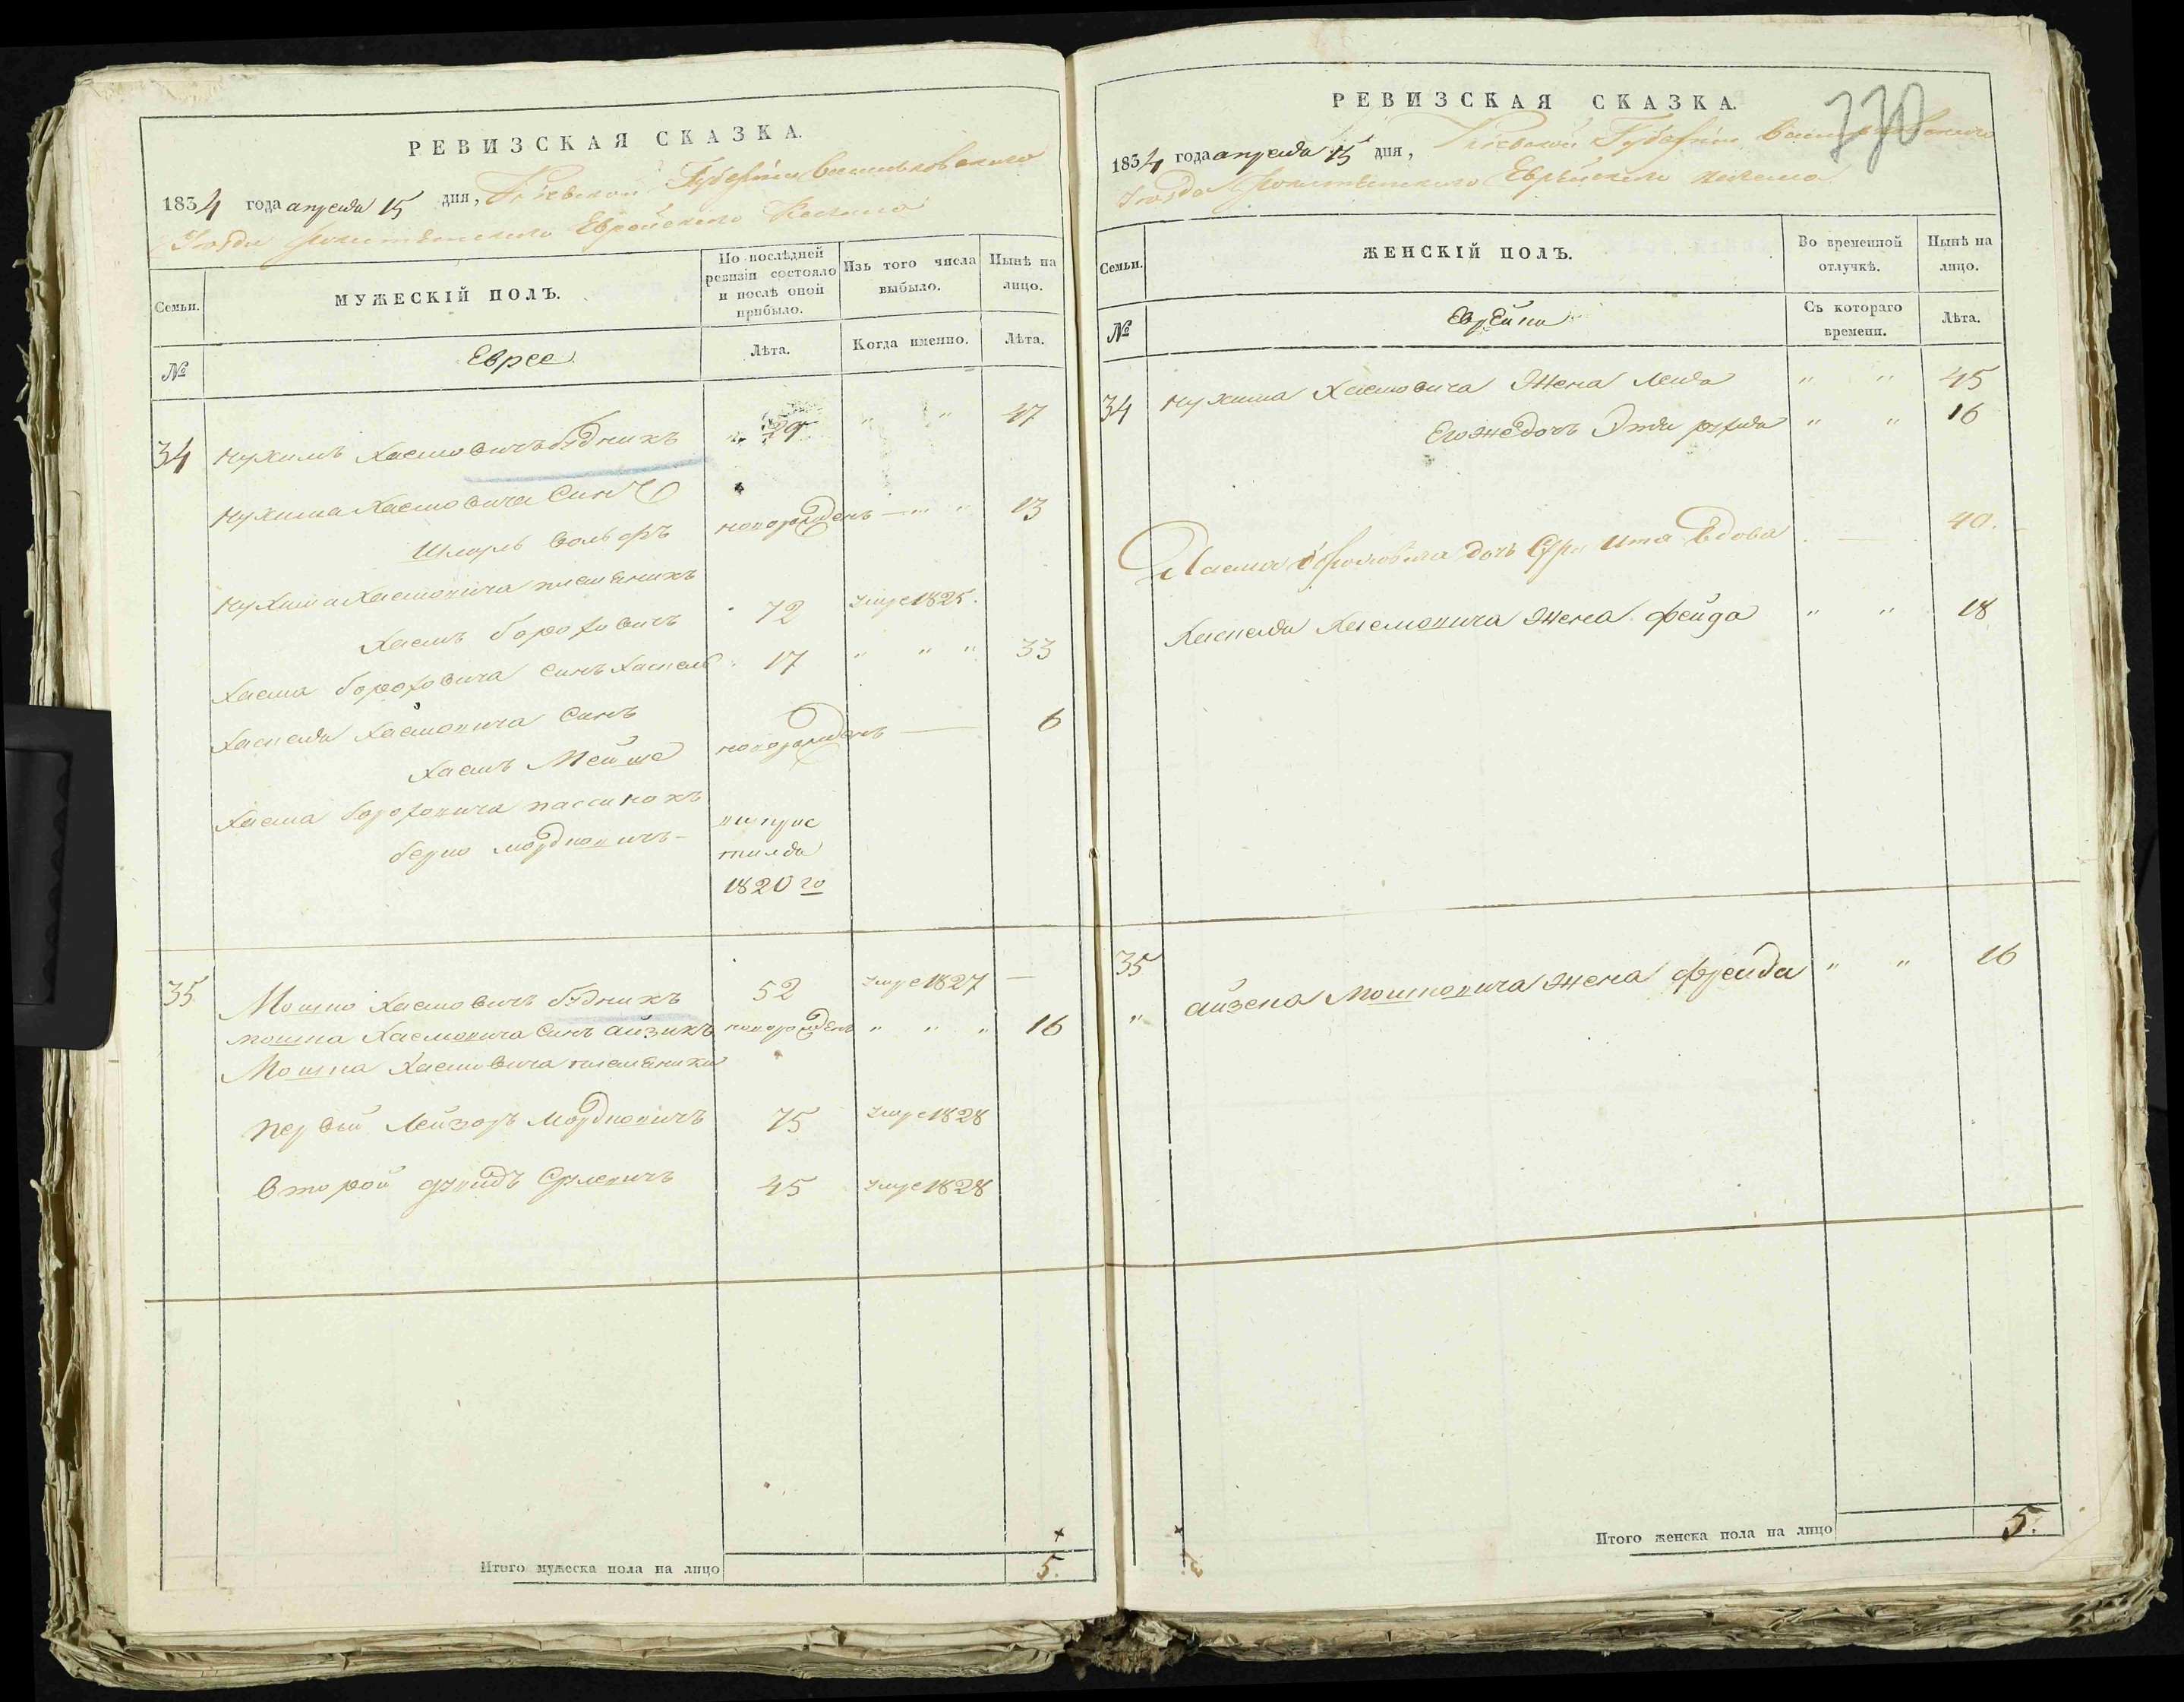 РЕВИЗСКАЯ СКАЗКА.
1834 года апреля 15 дня, Кіевской Губерніи Васильковскаго
Уезда Еврейского Кагала
Семьи.
МУЖЕСКІЙ ПОЛЪ.
По послѣдней ревизіи состояло и послѣ оной прибыло.
Изъ того числа выбыло.
Нынѣ на лицо.
№
Еврее
Лѣта.
Когда именно.
Лѣта.
34 Нухимъ Хаемовичъ Бѣдникъ 29 " " 47
Нухима Хаемовича Синъ
Шмуль Вольфъ новорожденъ — " " 13
Нухима Хаемовича племеникъ
Хаемъ Бороховичъ 72 умре 1825.
Хаема Бороховича синъ Хаскель 17 " " " 33
Хаскеля Хаемовича Синъ
Хаемъ Мейше новорожденъ — 6
Хаема Бороховича пассинокъ
Берко Мордковичъ -
1820 го
35 Мошко Хаемовичъ Бѣдникъ 52 умре 1827 —
Мошка Хаемовича Синъ Айзикъ новорожденъ " " " 16
Мошка Хаемовича племеники
Первый Лейзоръ Мордковичъ 75 умре 1828
Второй Срулевичъ 45 умре 1828
Итого мужеска пола на лицо 5.
РЕВИЗСКАЯ СКАЗКА.
770
1834 года апреля 15 дня, Кіевской Губерніи Васильковскаго
Уезда Еврейского Кагала
Семьи.
ЖЕНСКІЙ ПОЛЪ.
Во временной отлучкѣ.
Нынѣ на лицо.
№
Еврейки
Съ котораго времени.
Лѣта.
34 Нухима Хаемовича Жена Лея " " 45
Егоже дочь Эти рухля " " 16
Хаема дочь Ита Вдова — 40.
Хаскеля Хаемовича Жена Фейга " " 18
35 " Айзика Мошковича Жена Фрейда " " 16
Итого женска пола на лицо 5.